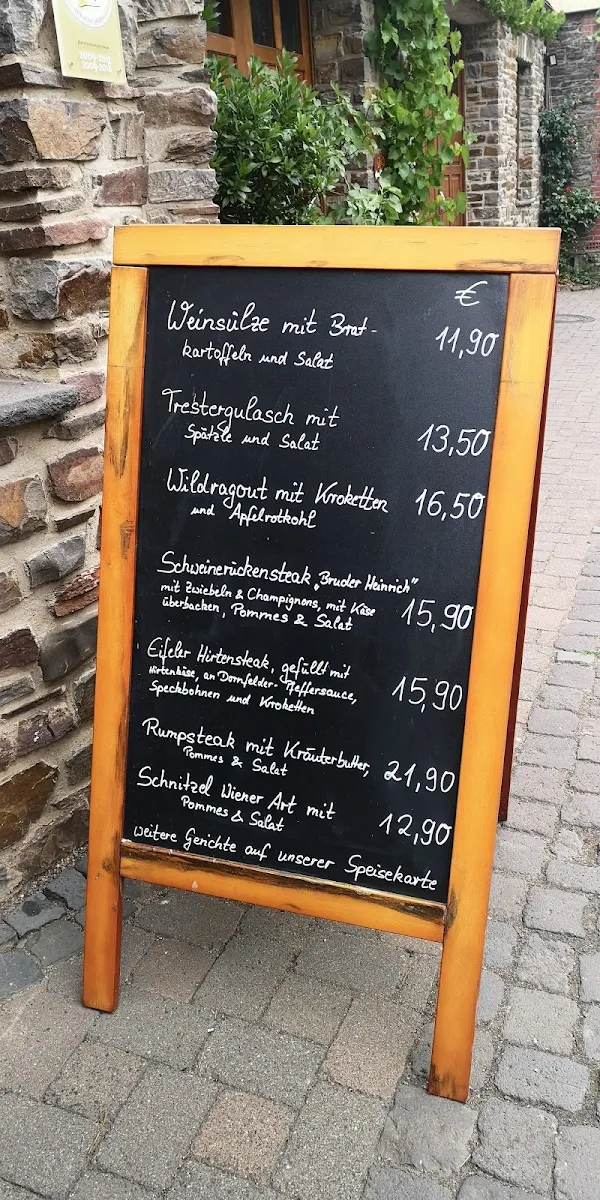 €
Weinsülze mit Brat- 11,90
kartoffeln und Salat
Trestergulasch mit 13,50
Spätzle und Salat
Wildragout mit Kroketten 16,50
und Apfelrotkohl
Schweinerückensteak „Bruder Heinrich“
mit Zwiebeln & Champignons, mit Käse 15,90
überbacken, Pommes & Salat
Eifeler Hirtensteak, gefüllt mit
Hirtenkäse, an Dornfelder-Pfeffersauce, 15,90
Speckbohnen und Kroketten
Rumpsteak mit Kräuterbutter, 21,90
Pommes & Salat
Schnitzel Wiener Art mit 12,90
Pommes & Salat
weitere Gerichte auf unserer Speisekarte